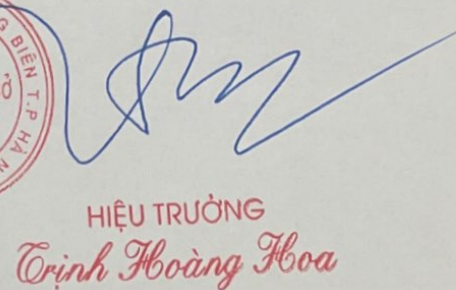 G BIÊN T.P HÀ N
HIỆU TRƯỞNG
Trịnh Hoàng Hoa